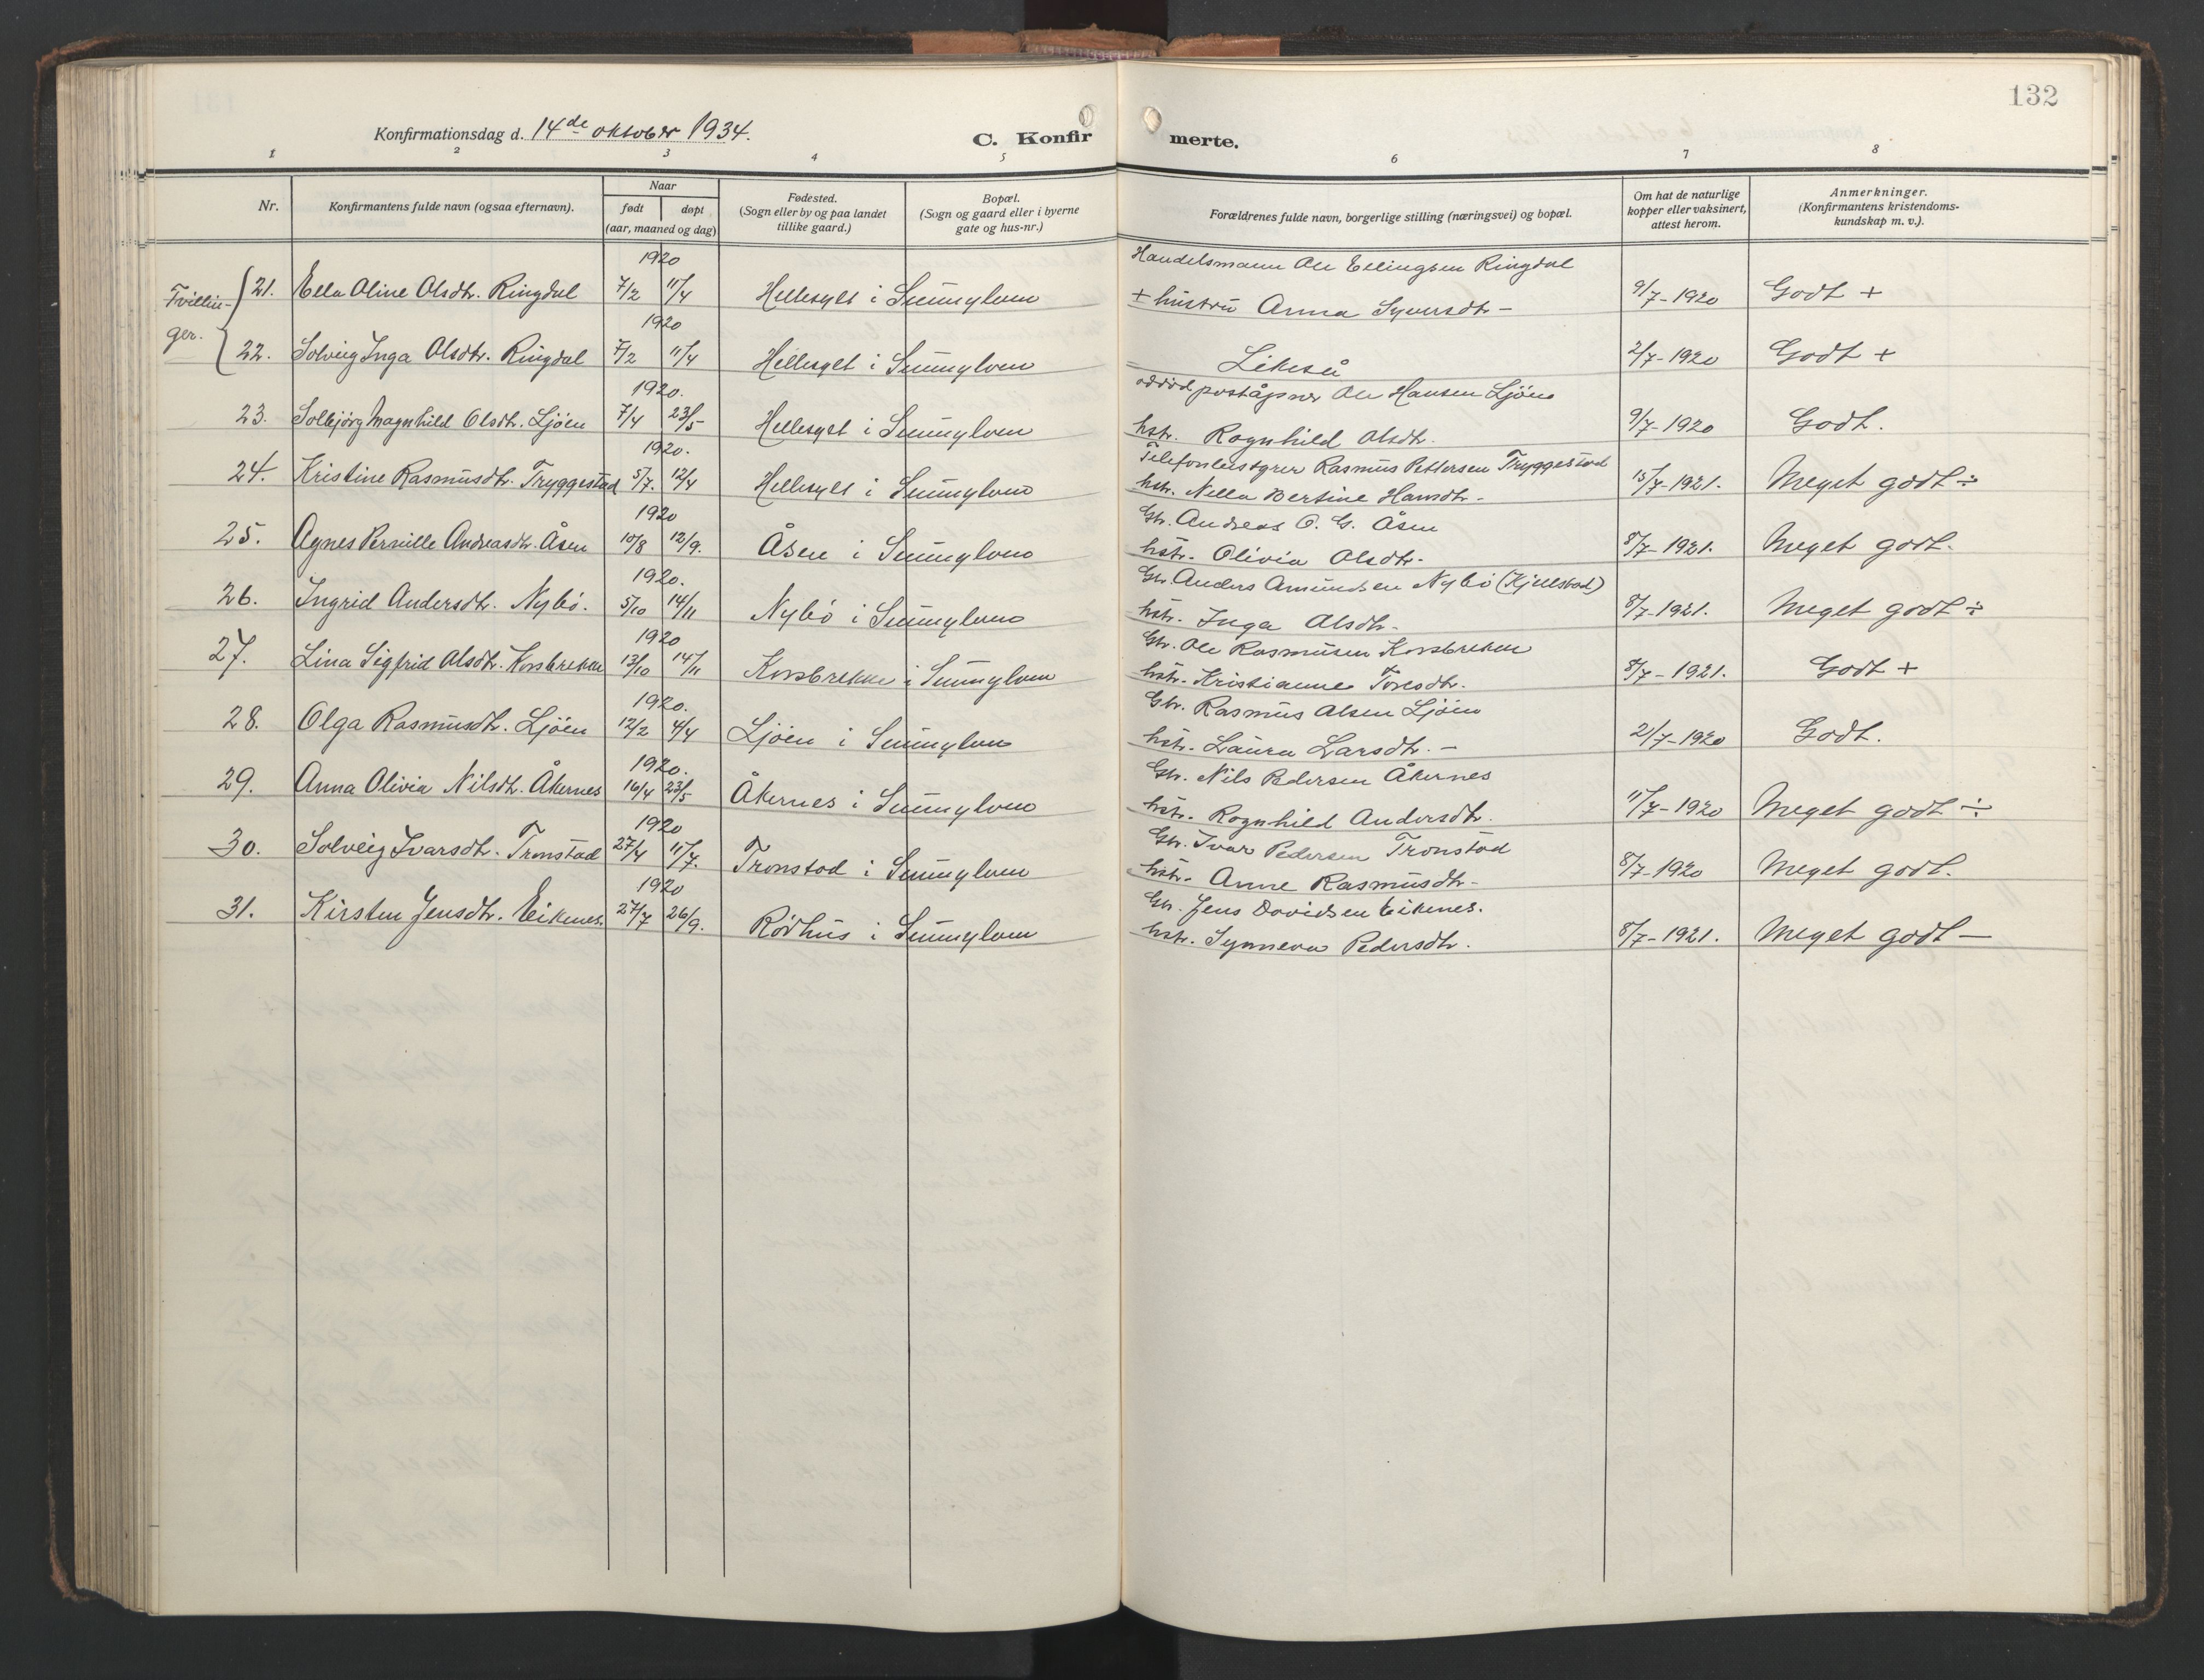 132
Konfirmationsdag d. 14de oktober 1934.
C. Konfirmerte.
1 2 3 4 5 6 7 8
Nr.
Konfirmantens fulde navn (ogsaa efternavn).
Naar
født døpt
(aar, maaned og dag)
Fødested.
(Sogn eller by og paa landet
tillike gaard.)
Bopæl.
(Sogn og gaard eller i byerne
gate og hus-nr.)
Forældrenes fulde navn, borgerlige stilling (næringsvei) og bopæl.
Om hat de naturlige
kopper eller vaksinert,
attest herom.
Anmerkninger.
(Konfirmantens kristendoms-
kundskap m. v.).
Tvillin-
ger.
1920 Handelsmann Ole Ellingsen Ringdal
21. Ella Oline Olsdtr. Ringdal 7/2 11/4 Hellesylt i Sunnylven + hustru Anna Syversdtr – 9/7-1920 Godt +
1920
22. Solveig Inga Olsdtr. Ringdal 7/2 11/4 Hellesylt i Sunnylven = Likeså 2/7-1920 Godt +
1920. poståpner Ole Hansen Ljöen
23. Solbjørg Magnhild Olsdtr. Ljöen 7/4 23/5 Hellesylt i Sunnylven hstr. Ragnhild Olsdtr. 9/7-1920 Godt.
1920. Telefonbestyrer Rasmus Pettersen Tryggestad
24. Kristine Rasmusdtr. Tryggestad 5/7. 12/4 Hellesylt i Sunnylven hstr. Nella Bertine Hansdtr - 15/7-1921. Meget godt ÷
1920 Gbr. Andreas O. G. Åsen
25. Agnes Pernille Andreasdtr. Åsen 10/8 12/9. Åsen i Sunnylven hstr. Olivia Olsdtr. 8/7-1921. Meget godt.
1920. Gbr. Anders Amundsen Nybö (Kjellstad)
26. Ingrid Andersdtr. Nybö. 5/10 14/11 Nybö i Sunnylven hstr. Inga Olsdtr. 8/7-1921. Meget godt ÷
1920 Gbr. Ole Rasmussen Korsbrekke
27. Lina Sigfrid Olsdtr. Korsbrekke 13/10 14/11 Korsbrekke i Sunnylven hstr. Kristianne Toresdtr. 8/7-1921. Godt +
1920. Gbr. Rasmus Olsen Ljöen
28. Olga Rasmusdtr. Ljöen 12/2 4/4 Ljöen i Sunnylven hstr. Laura Larsdtr. – 2/7-1920 Godt.
1920. Gbr. Nils Pedersen Åkernes
29. Anna Olivia Nilsdtr. Åkernes 16/4 23/5 Åkernes i Sunnylven hstr. Ragnhild Andersdtr. 11/7-1920 Meget godt ÷
1920 Gbr. Ivar Pedersen Tronstad
30. Solveig Ivarsdtr. Tronstad 27/4 11/7. Tronstad i Sunnylven hstr. Anne Rasmusdtr - 8/7-1920 Meget godt.
1920 Gbr. Jens Davidsen Eikenes.
31. Kirsten Jensdtr. Eikenes. 27/7 26/9. Rödhus i Sunnylven hstr. Synneva Pedersdtr. 8/7-1921. Meget godt –